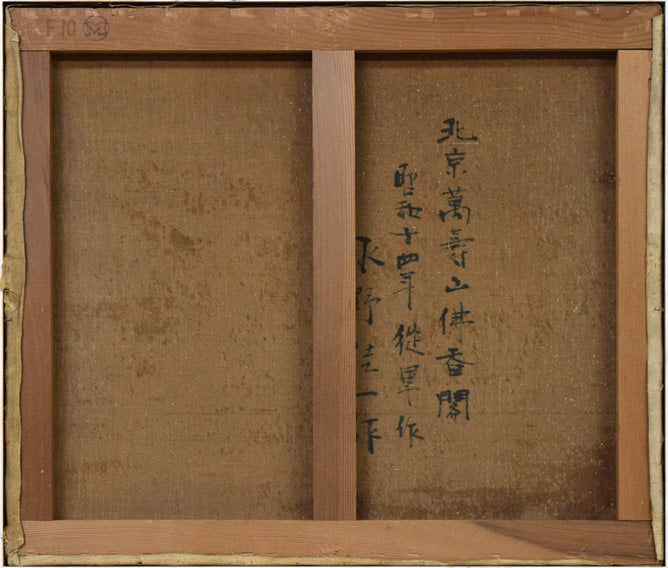 F10 M
北京萬壽山佛香閣
昭和十四年 從軍作
野 一作